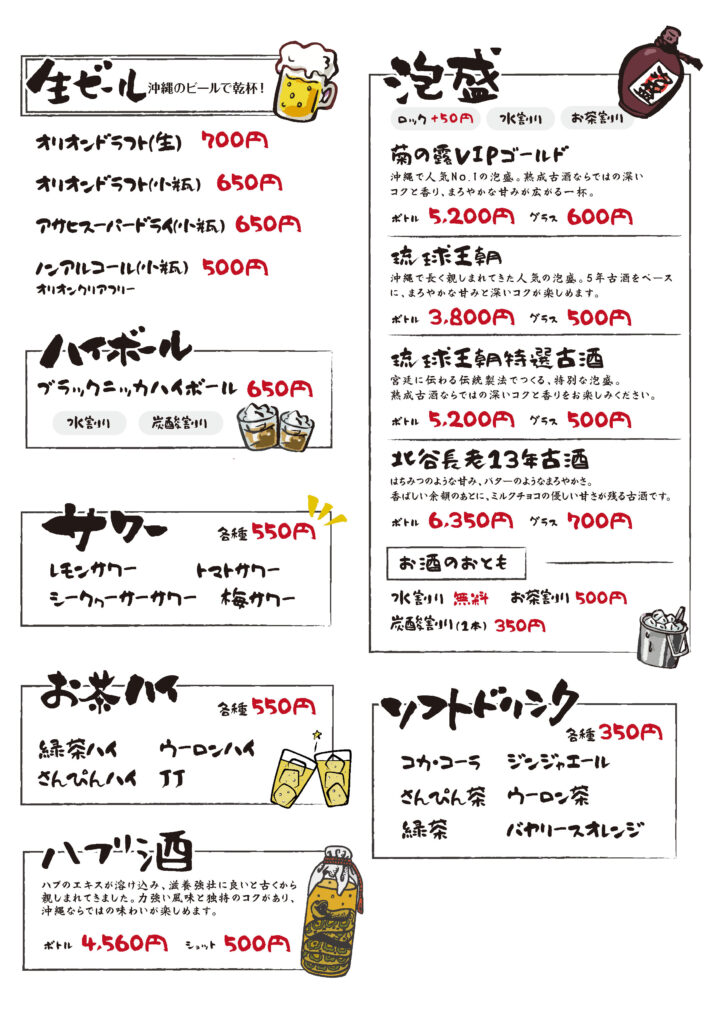 生ビール 沖縄のビールで乾杯!
オリオンドラフト(生) 700円
オリオンドラフト(小瓶) 650円
アサヒスーパードライ(小瓶) 650円
ノンアルコール(小瓶) 500円
オリオンクリアフリー
ハイボール
ブラックニッカハイボール 650円
水割り 炭酸割り
サワー
各種 550円
レモンサワー トマトサワー
シークヮーサーサワー 梅サワー
お茶ハイ
各種 550円
緑茶ハイ ウーロンハイ
さんぴんハイ JJ
ハブ酒
ハブのエキスが溶け込み、滋養強壮に良いと古くから
親しまれてきました。力強い風味と独特のコクがあり、
沖縄ならではの味わいが楽しめます。
ボトル 4,560円 ショット 500円
泡盛
ロック +50円 水割り お茶割り
菊の露VIPゴールド
沖縄で人気No.1の泡盛。熟成古酒ならではの深い
コクと香り、まろやかな甘みが広がる一杯。
ボトル 5,200円 グラス 600円
琉球王朝
沖縄で長く親しまれてきた人気の泡盛。5年古酒をベース
に、まろやかな甘みと深いコクが楽しめます。
ボトル 3,800円 グラス 500円
琉球王朝特選古酒
宮廷に伝わる伝統製法でつくる、特別な泡盛。
熟成古酒ならではの深いコクと香りをお楽しみください。
ボトル 5,200円 グラス 500円
北谷長老13年古酒
はちみつのような甘み、バターのようなまろやかさ。
香ばしい余韻のあとに、ミルクチョコの優しい甘さが残る古酒です。
ボトル 6,350円 グラス 700円
お酒のおとも
水割り 無料 お茶割り 500円
炭酸割り(1本) 350円
ソフトドリンク
各種 350円
コカ・コーラ ジンジャエール
さんぴん茶 ウーロン茶
緑茶 バヤリースオレンジ